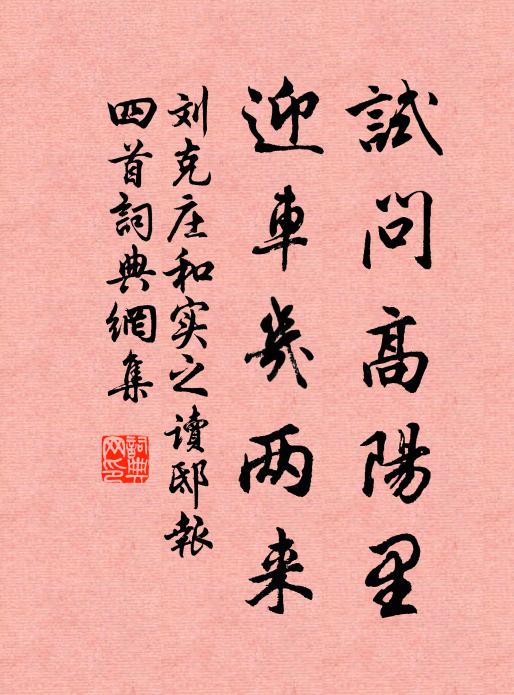 試問高陽里
迎車幾两来
刘克庄和实之读邸報
四首詞典網集
詞典
网印